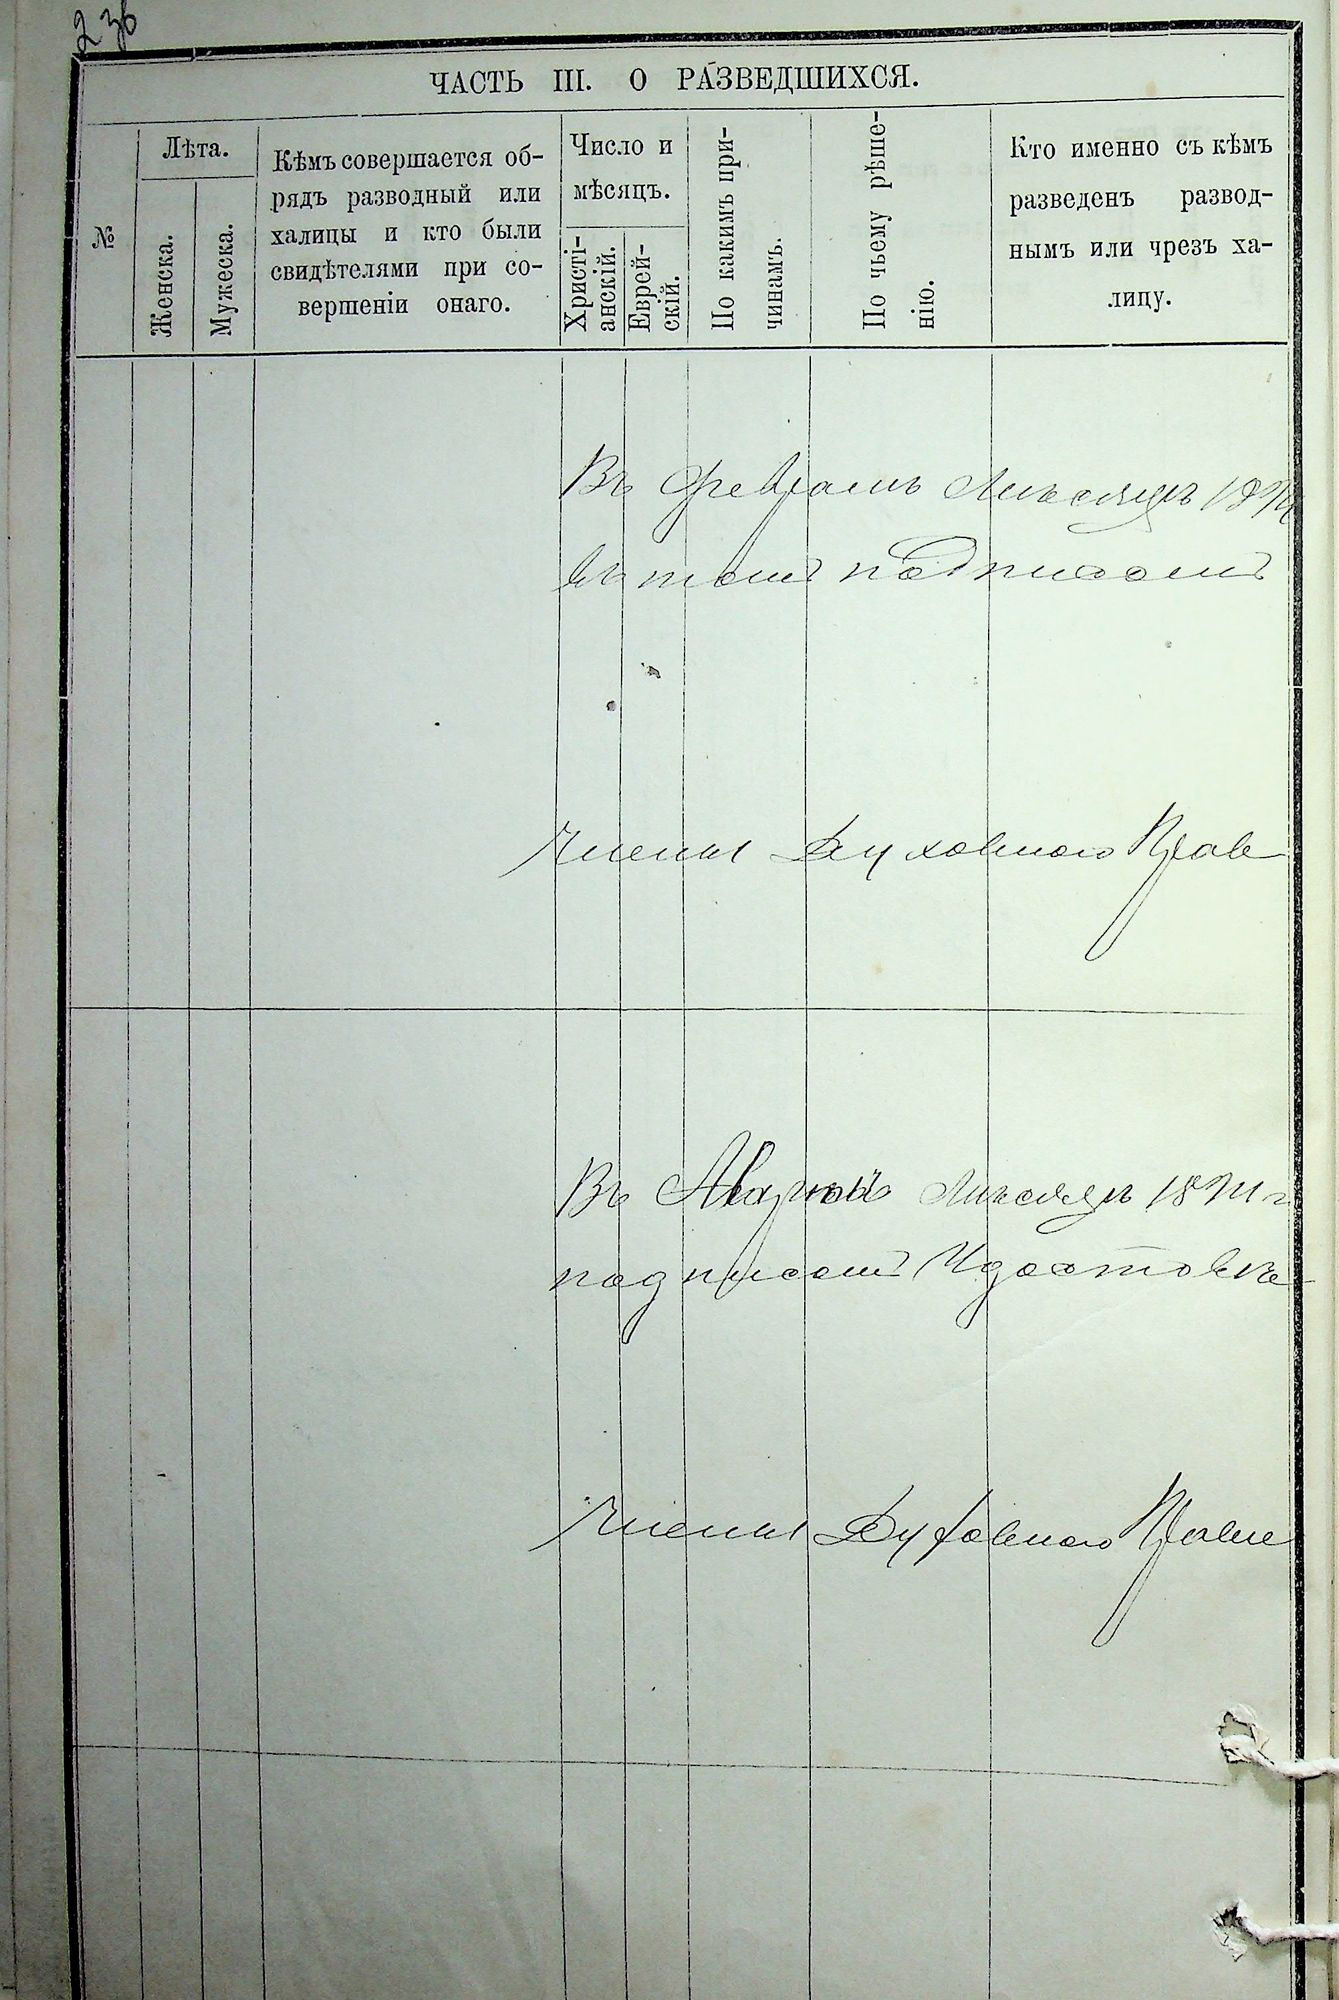 236
ЧАСТЬ III. О РАЗВЕДШИХСЯ.
№
Лѣта.
Женска.
Мужеска.
Кѣмъ совершается об-
рядъ разводный или
халицы и кто были
свидѣтелями при со-
вершеніи онаго.
Число и
мѣсяцъ.
Христі-
анскій.
Еврей-
скій.
По какимъ при-
чинамъ.
По чьему рѣше-
нію.
Кто именно съ кѣмъ
разведенъ развод-
нымъ или чрезъ ха-
лицу.
Въ Февралѣ Мѣсяцѣ
въ томъ подписомъ
Члены Духовного Прав
Въ Мѣсяцѣ
подписомъ Удостовѣ
Члены Духовного Правле